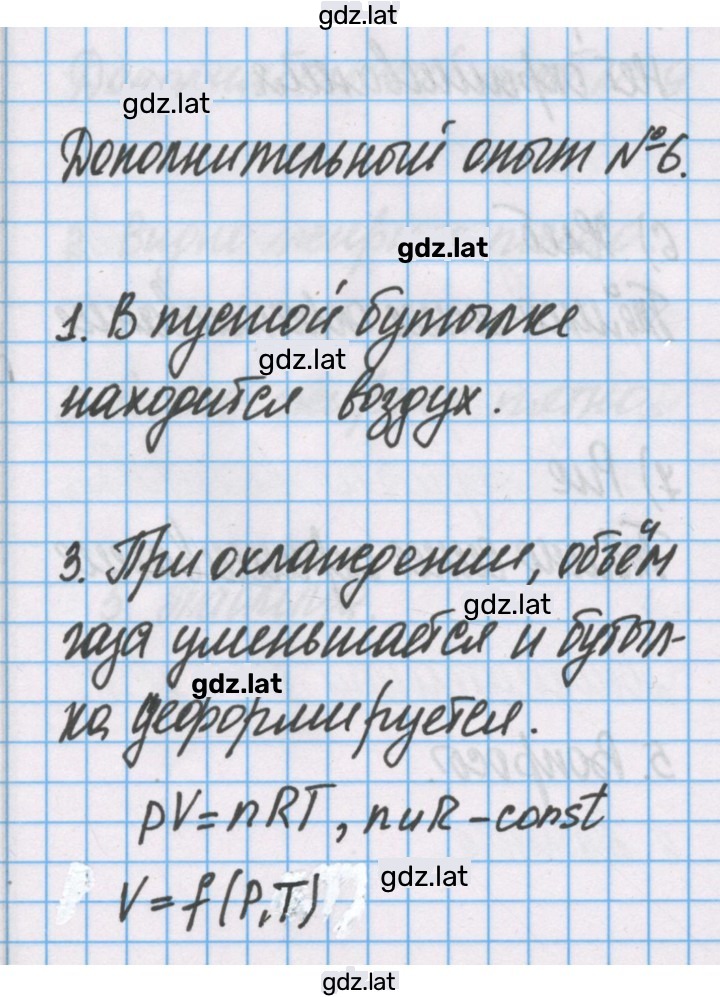 gdz.lat
gdz.lat
Дополнительный опыт №6.
gdz.lat
1. В пустой бутылке
gdz.lat
находится воздух.
3. При охлаждении, объём
gdz.lat
газа уменьшается и бутыл-
gdz.lat
ка деформируется.
pV = nRT, n и R - const
gdz.lat
V = f(P,T)
gdz.lat